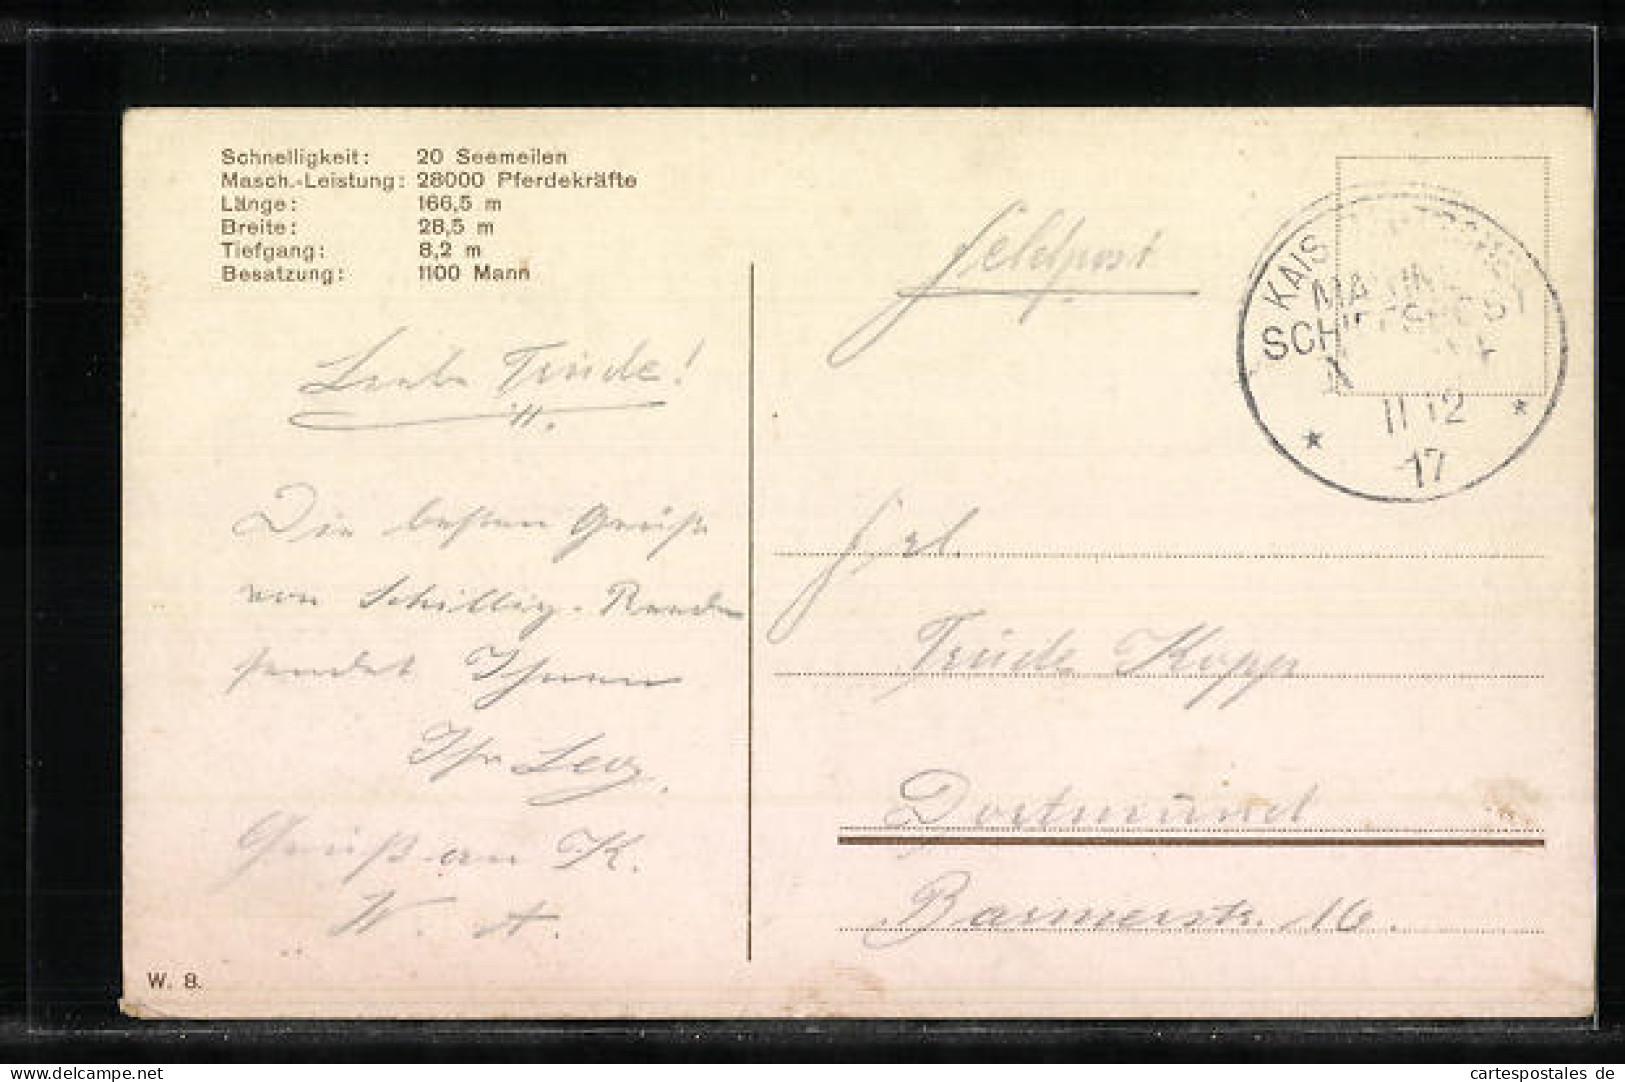 Schnelligkeit: 20 Seemeilen
Masch.-Leistung: 28000 Pferdekräfte
Länge: 166,5 m
Breite: 28,5 m
Tiefgang: 8,2 m
Besatzung: 1100 Mann
Feldpost
KAIS.
MARINE
SCHIFFSPOST
11 12
17
Liebe Trude!
Die besten Grüße
von Schillig-Reede
sendet Ihnen
Ihr
Gruß an K.
W. A.
Frl.
Trude Kopp
Dortmund
Barmerstr. 16.
W. 8.
cartespostales de